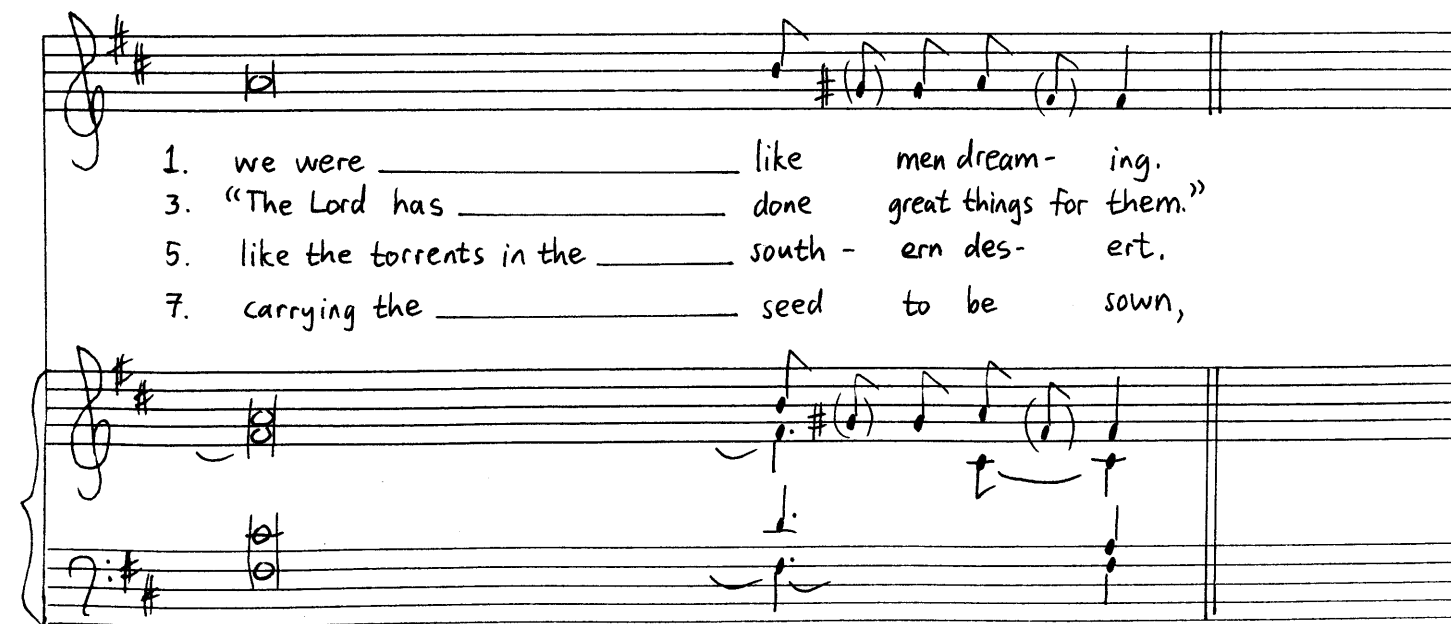 1. we were ____________ like men dream- ing.
3. “The Lord has ____________ done great things for them.”
5. like the torrents in the ____________ south - ern des- ert.
7. carrying the ____________ seed to be sown,